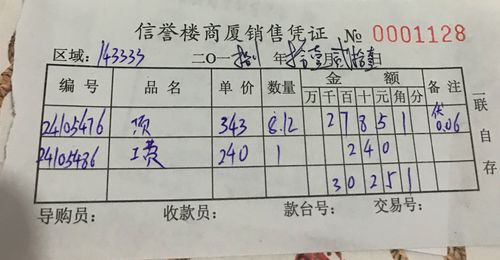 信誉楼商厦销售凭证 № 0001128
区域：143333 二〇一捌年拾壹月贰拾壹日
编号 品名 单价 数量 金额 备注
万 千 百 十 元 角 分
24105476 项 343 8.12 2 7 8 5 1 0.06
24105486 工费 240 1 2 4 0
3 0 2 5 1
导购员： 收款员： 款台号： 交易号：
一联自存